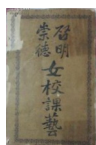 啓明
崇德
女校課藝